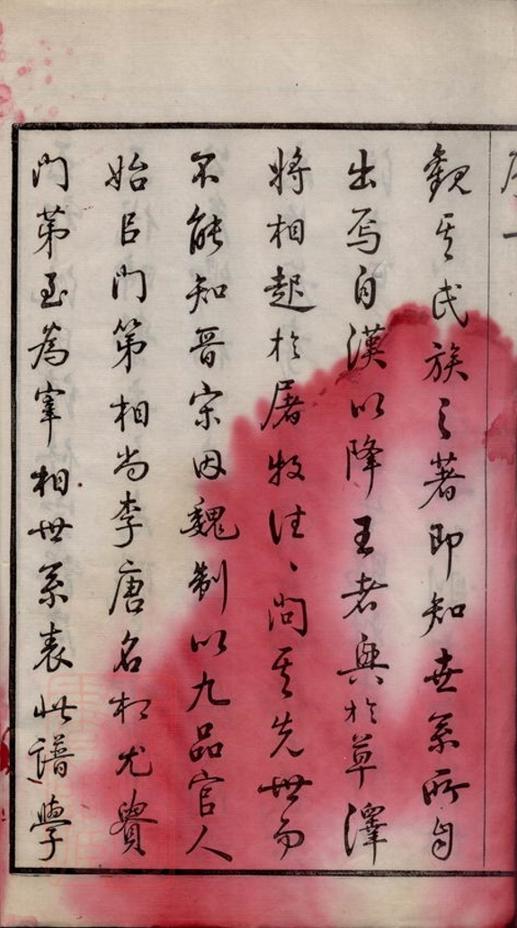 觀其氏族之著即知世系所自
出焉自漢以降王者興於草澤
將相起於屠牧往〻問其先世而
不能知晉宋因魏制以九品官人
始以門第相尚李唐名相尤貴
門第至為宰相世系表此譜學